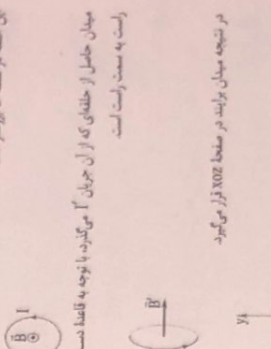 I
B
میدان حاصل از حلقه‌ای که از آن جریان I' می‌گذرد، با توجه به قاعدهٔ دست
راست به سمت راست است.
B'
در نتیجه میدان برایند در صفحهٔ xoz قرار می‌گیرد.
y